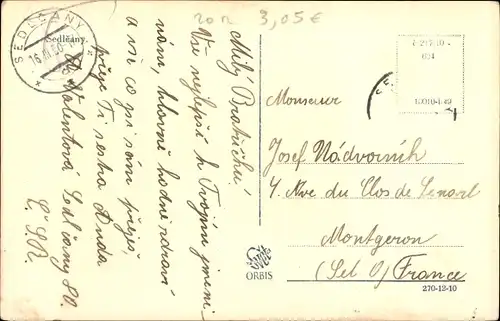 20 12
3,05 €
SEDLČANY
16.III.50
Sedlčany.
Milý Bratříčku!
Vše nejlepší k Tvojím jmeni-
nám, hlavně hodně zdraví
a vše co si sám přeješ,
přeje Ti sestra Anda
Valentová Sedlčany 80.
Č.S.R.
Monsieur
Josef Nádvorník
4. Ave du Clos de
Montgeron
(Set O) France
ORBIS
270-12-10